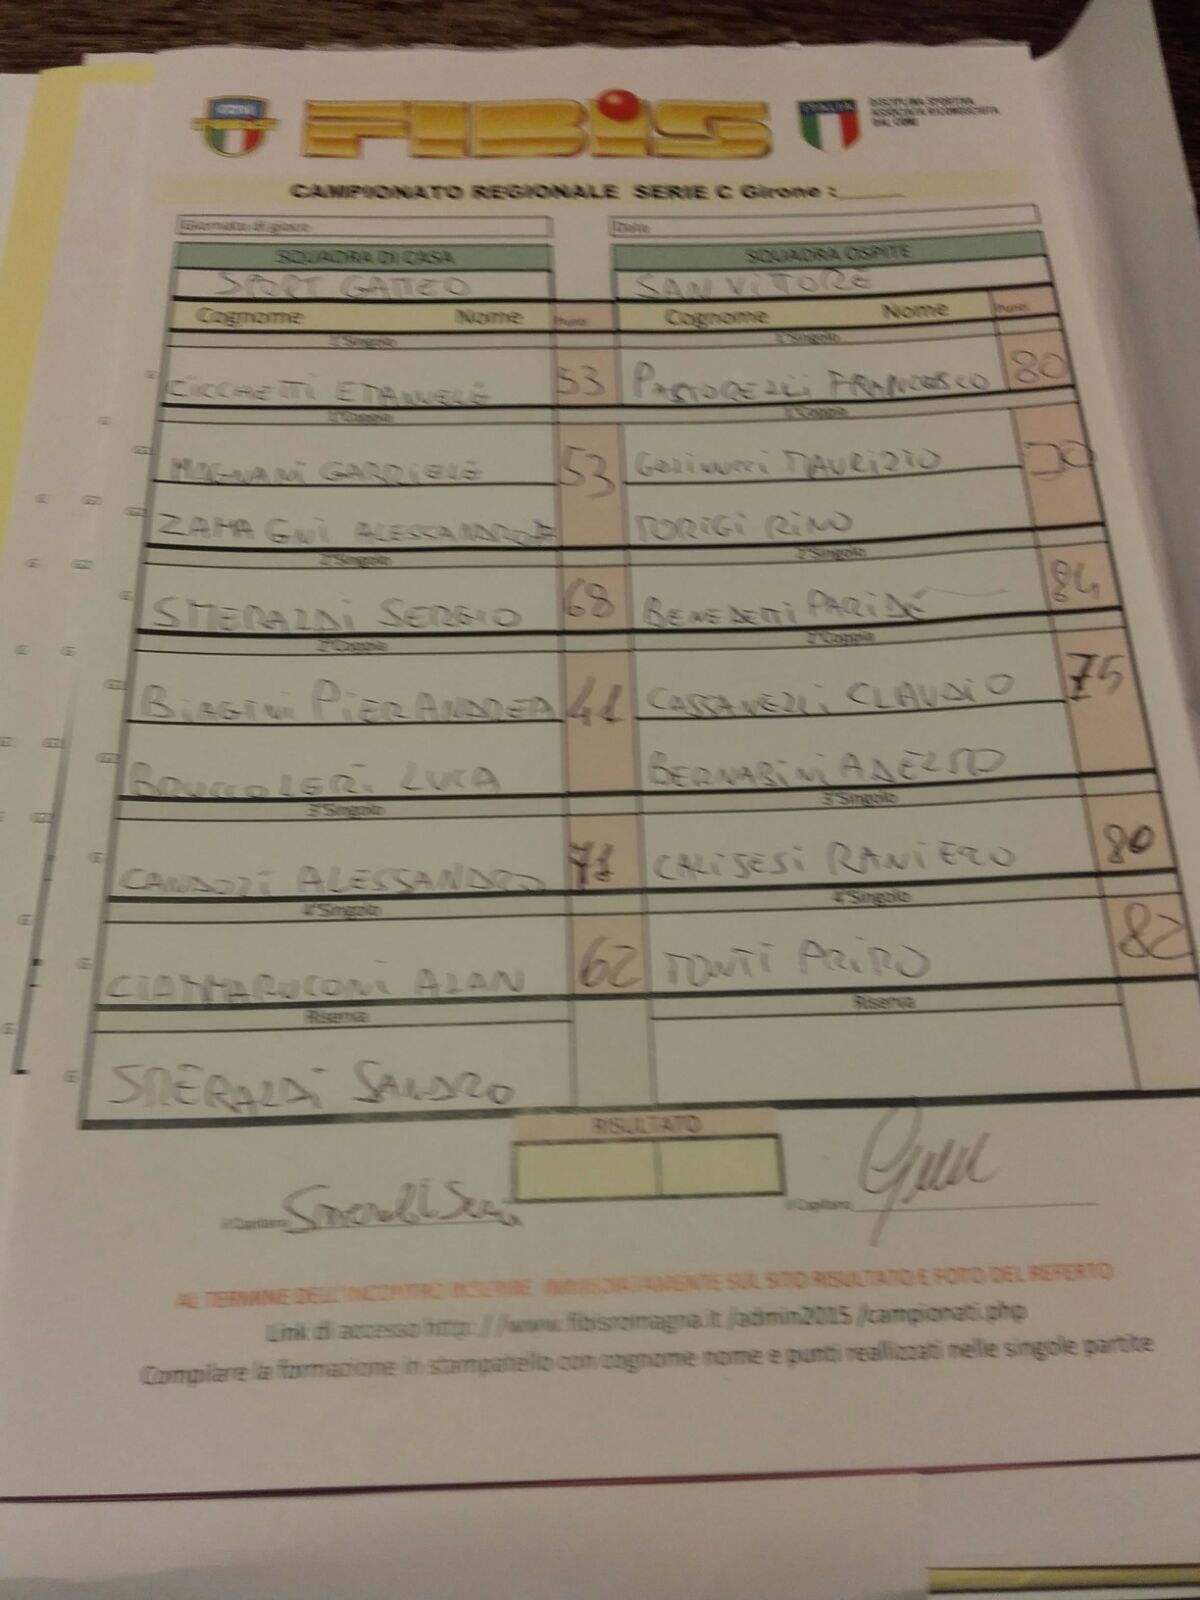 FIBiS
ITALIA
DISCIPLINA SPORTIVA
ASSOCIATA RICONOSCIUTA
DAL CONI
CAMPIONATO REGIONALE SERIE C Girone :
Giornata di gioco
Data
SQUADRA DI CASA SQUADRA OSPITE
SPORT GATTEO SAN VITTORE
Cognome Nome Punti Cognome Nome Punti
1°Singolo 1°Singolo
CICCHETTI 53 FRANCESCO 80
1°Coppia 1°Coppia
MAGNANI GABRIELE 53 MAURIZIO
ZAMAGNI ALESSANDRO RINO
2°Singolo 2°Singolo
SMERALDI SERGIO 68 BENEDETTI PARIDE 84
2°Coppia 2°Coppia
BIAGINI PIERANDREA 41 CLAUDIO 75
LUCA BERNABINI ADELMO
3°Singolo 3°Singolo
ALESSANDRO 71 CALISESI RANIERO 80
4°Singolo 4°Singolo
ALAN 62 TONTI 82
Riserva Riserva
SMERALDI SANDRO
RISULTATO
Il Capitano Il Capitano
AL TERMINE DELL'INCONTRO INSERIRE IMMEDIATAMENTE SUL SITO RISULTATO E FOTO DEL REFERTO
Link di accesso http://www.fibisromagna.it /admin2015 /campionati.php
Compilare la formazione in stampatello con cognome nome e punti realizzati nelle singole partite